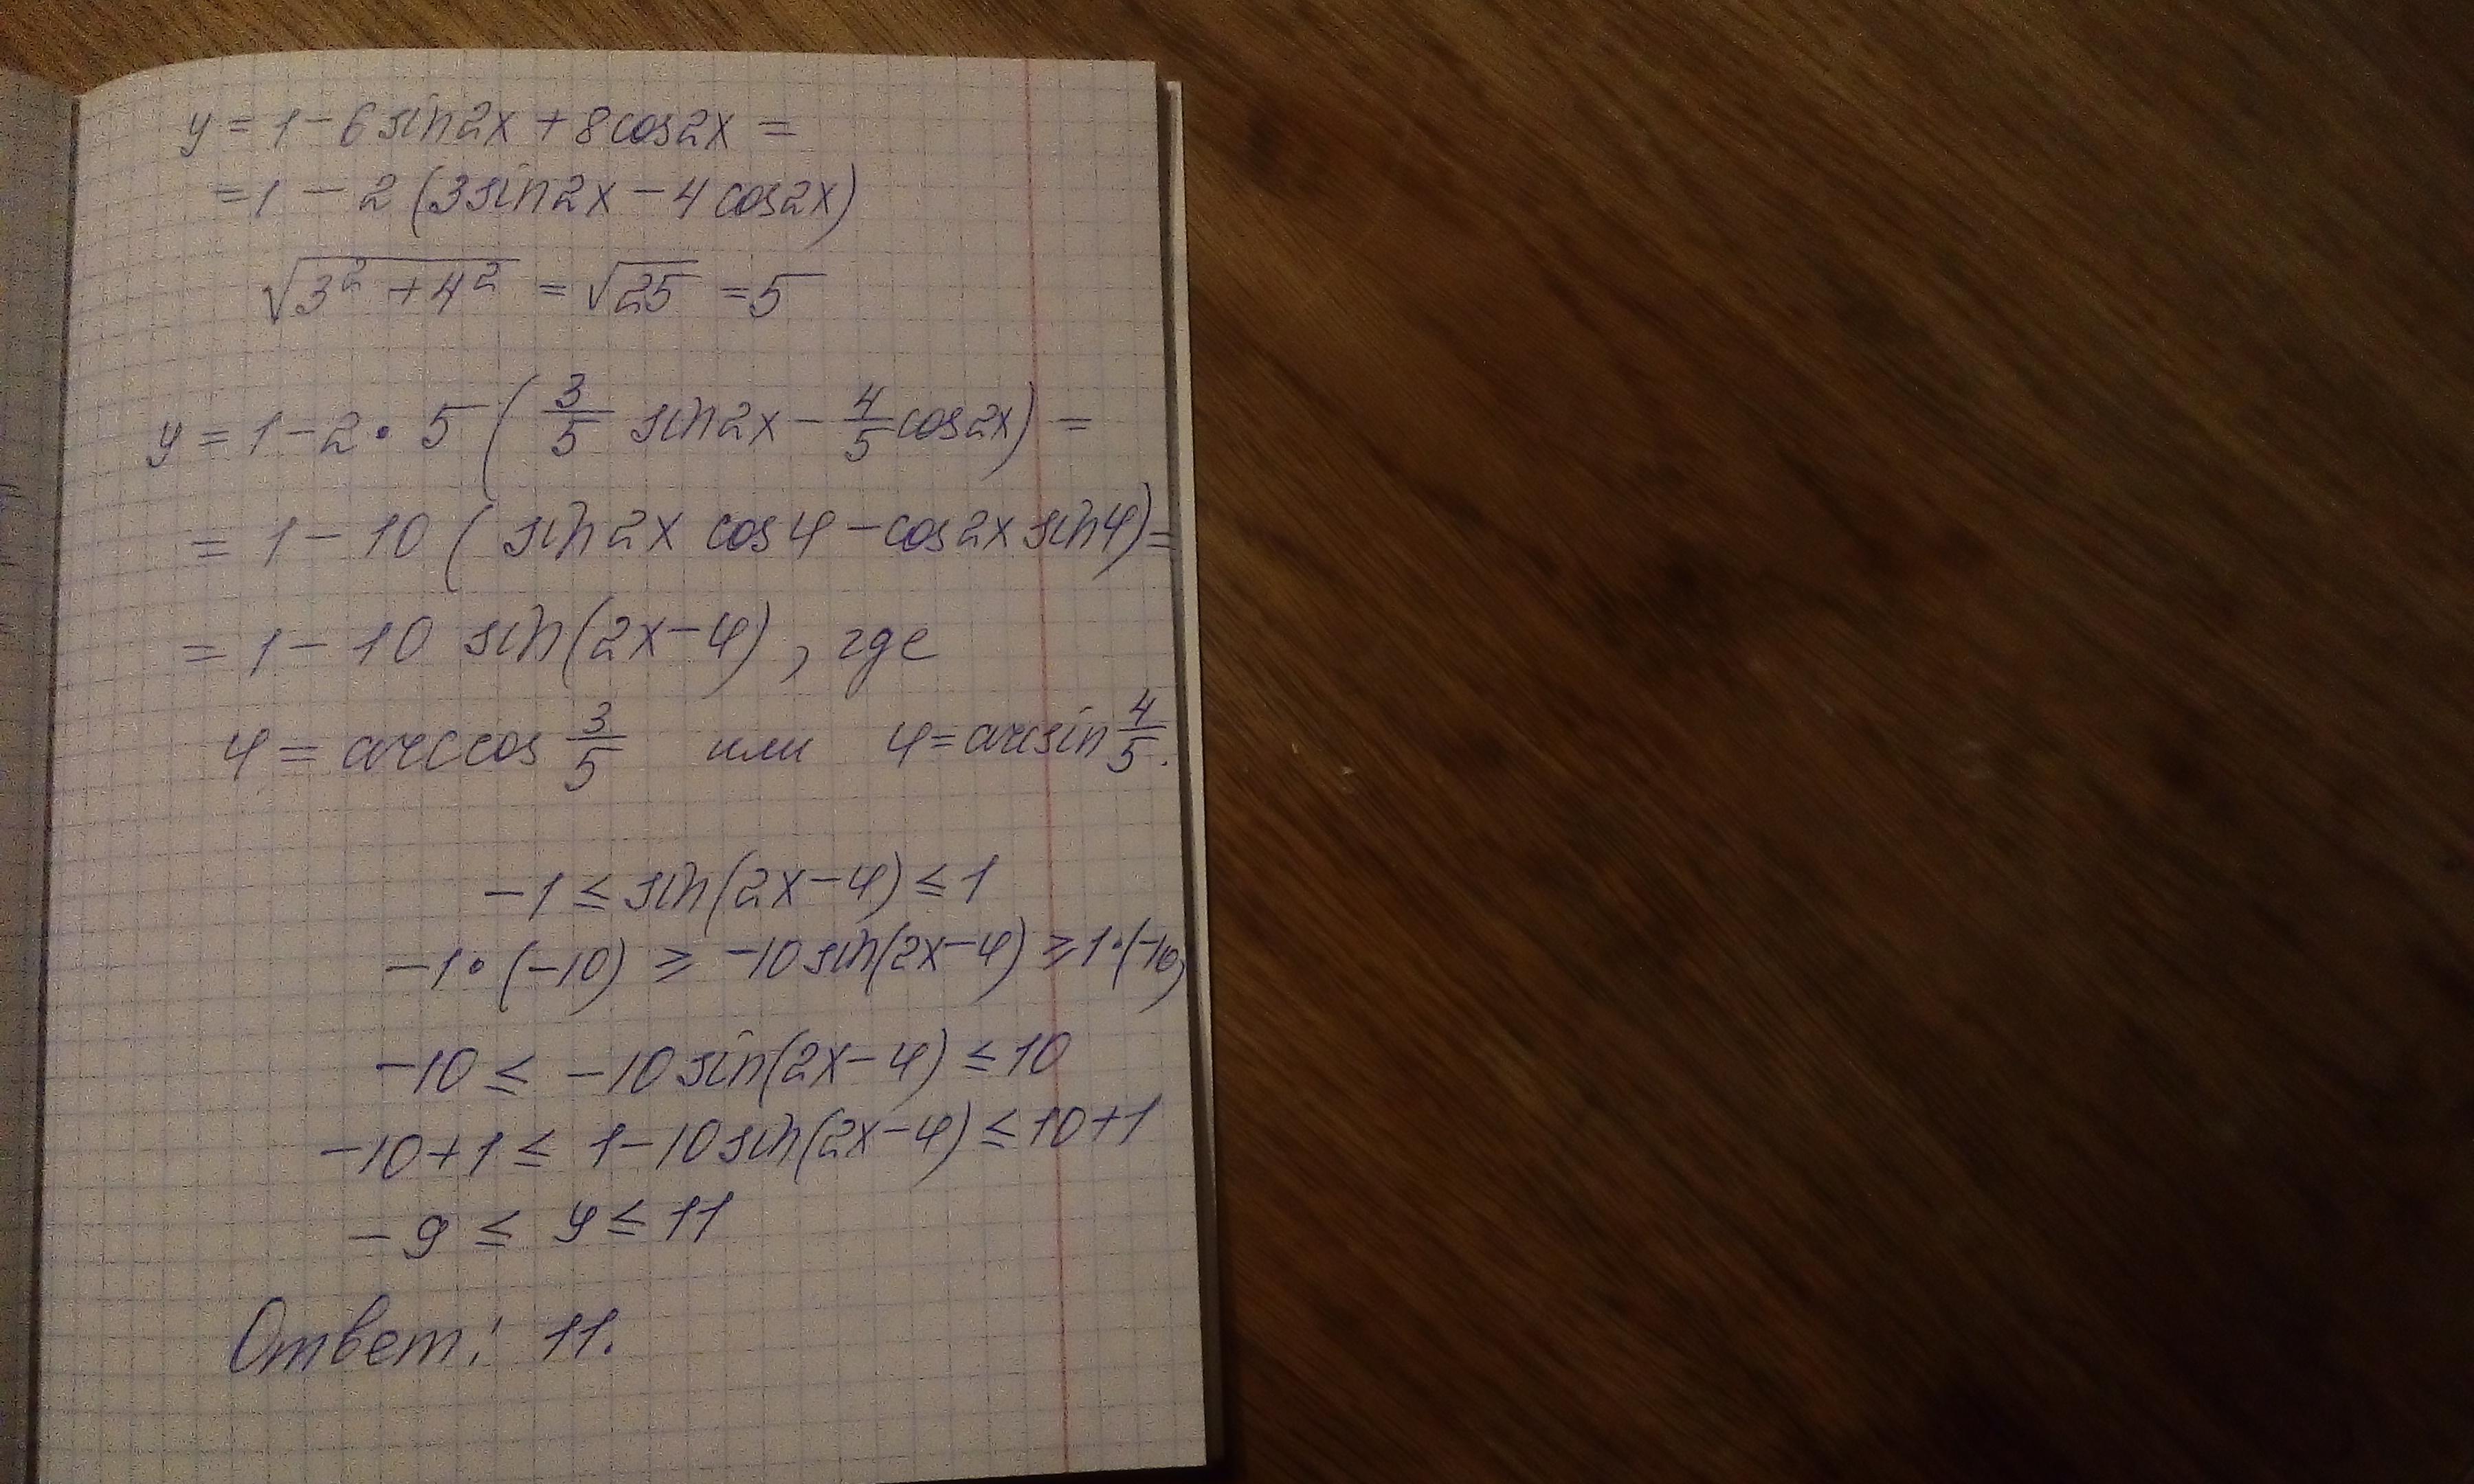 y = 1 - 6 sin2x + 8 cos2x =
= 1 - 2 (3 sin2x - 4 cos2x)
√(3² + 4²) = √25 = 5
y = 1 - 2 · 5 (3/5 sin2x - 4/5 cos2x) =
= 1 - 10 (sin2x cosφ - cos2x sinφ) =
= 1 - 10 sin(2x - φ), где
φ = arccos 3/5 или φ = arcsin 4/5.
-1 ≤ sin(2x - φ) ≤ 1
-1 · (-10) ≥ -10 sin(2x - φ) ≥ 1 · (-10)
-10 ≤ -10 sin(2x - φ) ≤ 10
-10 + 1 ≤ 1 - 10 sin(2x - φ) ≤ 10 + 1
-9 ≤ y ≤ 11
Ответ: 11.